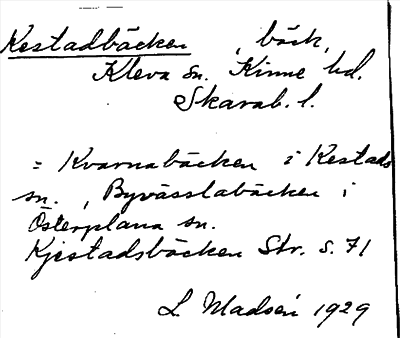 Kestadbäcken, bäck,
Kleva sn. Kinne hd.
Skarab. l.
= Kvarnabäcken i Kestads
sn., Byvässlabäcken i
Österplana sn.
Kjestadsbäcken Str. s. 71
L Madsén 1929